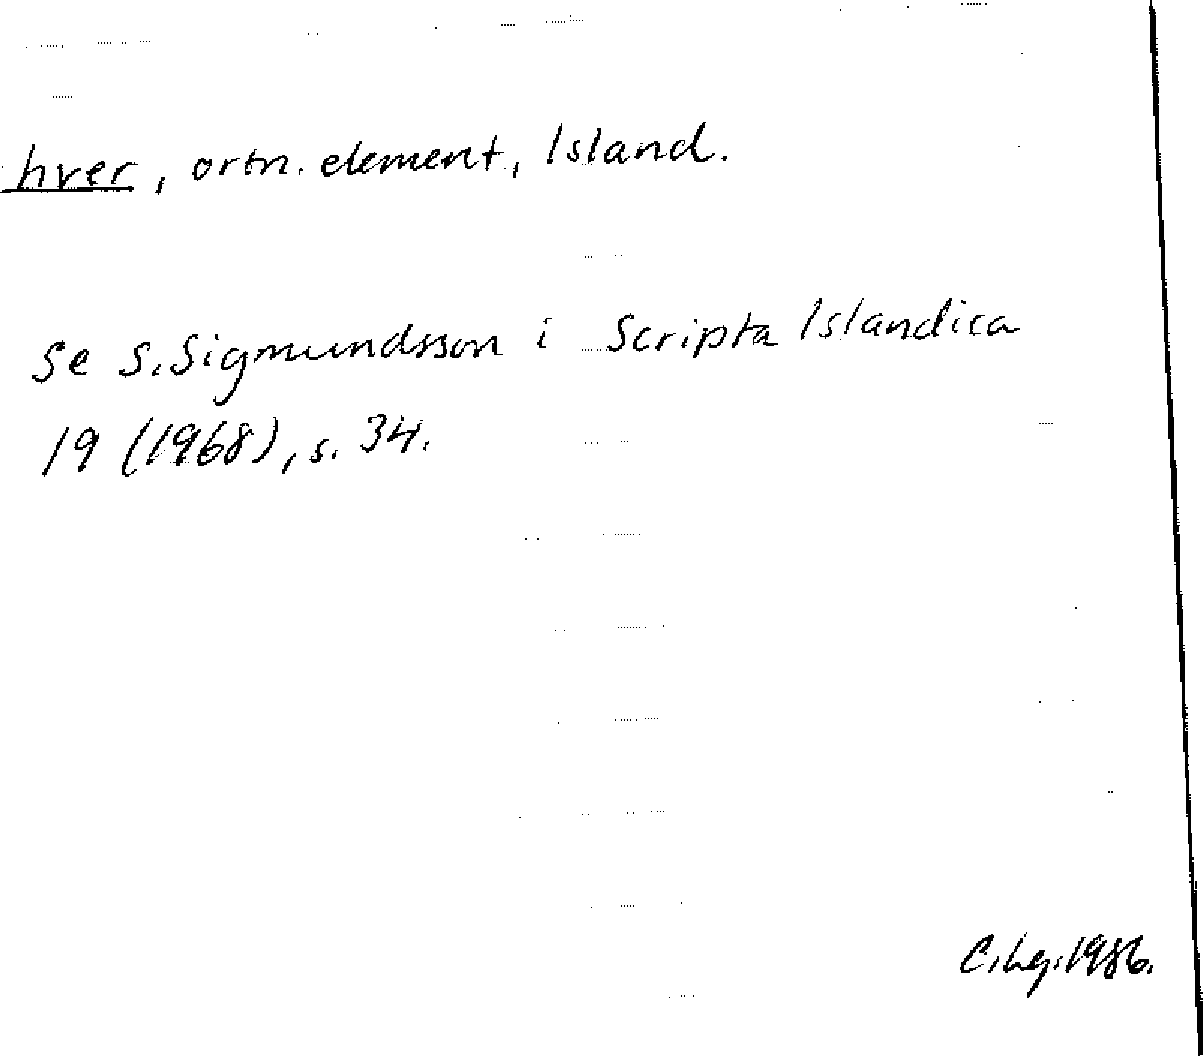 hver, ortn. element, Island.
Se S. Sigmundsson i Scripta Islandica
19 (1968), s. 34.
C. Lg. 1986.